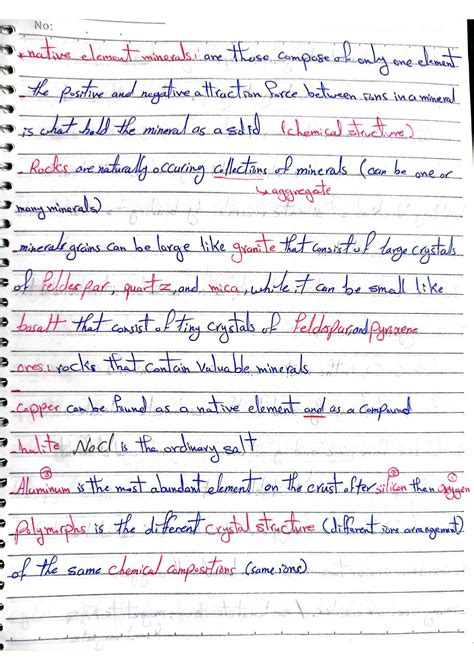 No:
native element minerals: are those compose of only one element
- the positive and negative attraction force between ions in a mineral
is what hold the mineral as a solid (chemical structure)
- Rocks are naturally occuring collections of minerals (can be one or
↳ aggregate
many minerals)
minerals grains can be large like granite that consist of large crystals
of feldespar, quartz, and mica, while it can be small like
basalt that consist of tiny crystals of feldespar, and pyroxene
- ores: rocks that contain valuable minerals
- copper can be found as a native element and as a compound
- halite NaCl is the ordinary salt
③ ② ①
- Aluminum is the most abundant element on the crust after silicon then oxygen
- Polymorphs is the different crystal structure (different ions arrangement)
of the same chemical compositions (same ions)